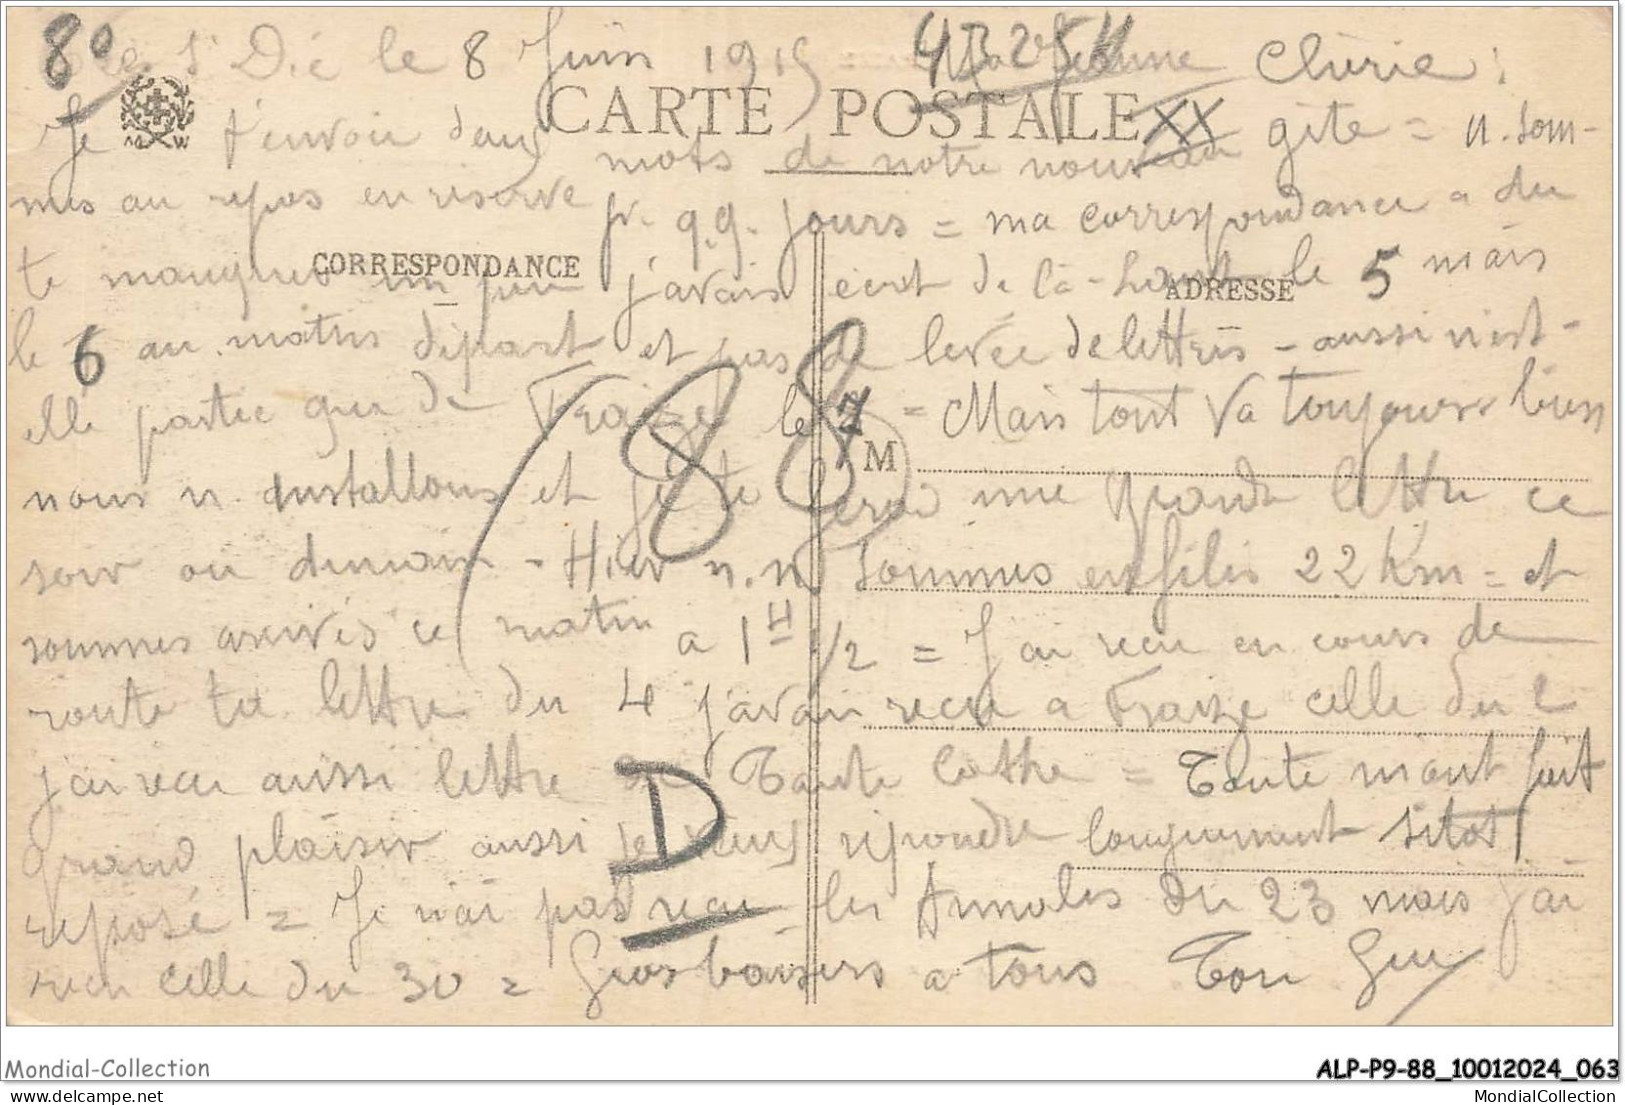 80
St Dié le 8 Juin 1915 Ma Jeanne Chérie :
43251
CARTE POSTALE
XX
Je t'envoie deux mots de notre nouveau gite = n. som-
mes au repos en réserve pr. q.q. jours = ma correspondance a du
CORRESPONDANCE
te manquer un peu j'avais écrit de là-haut le 5 mais
ADRESSE
le 6 au matin départ et pas de levée de lettres - aussi n'est-
elle partie que de Fraize le 7 = Mais tout va toujours bien
88
M
nous n. installons et je te ferai une grande lettre ce
soir ou demain - Hier n. n. sommes enfilés 22 Km = et
sommes arrivés ce matin a 1H 1/2 = J'ai reçu en cours de
route ta lettre du 4 j'avais reçu a Fraize celle du 2
j'ai reçu aussi lettre de Tante Cathe = Toute m'ont fait
D
grand plaisir aussi je veux répondre longuement sitot
reposé = Je n'ai pas reçu les Annales du 23 mais j'ai
reçu celle du 30 = Gros baisers a tous Ton Guy
Mondial-Collection
ALP-P9-88_10012024_063
www.mondialcollection.com
MondialCollection